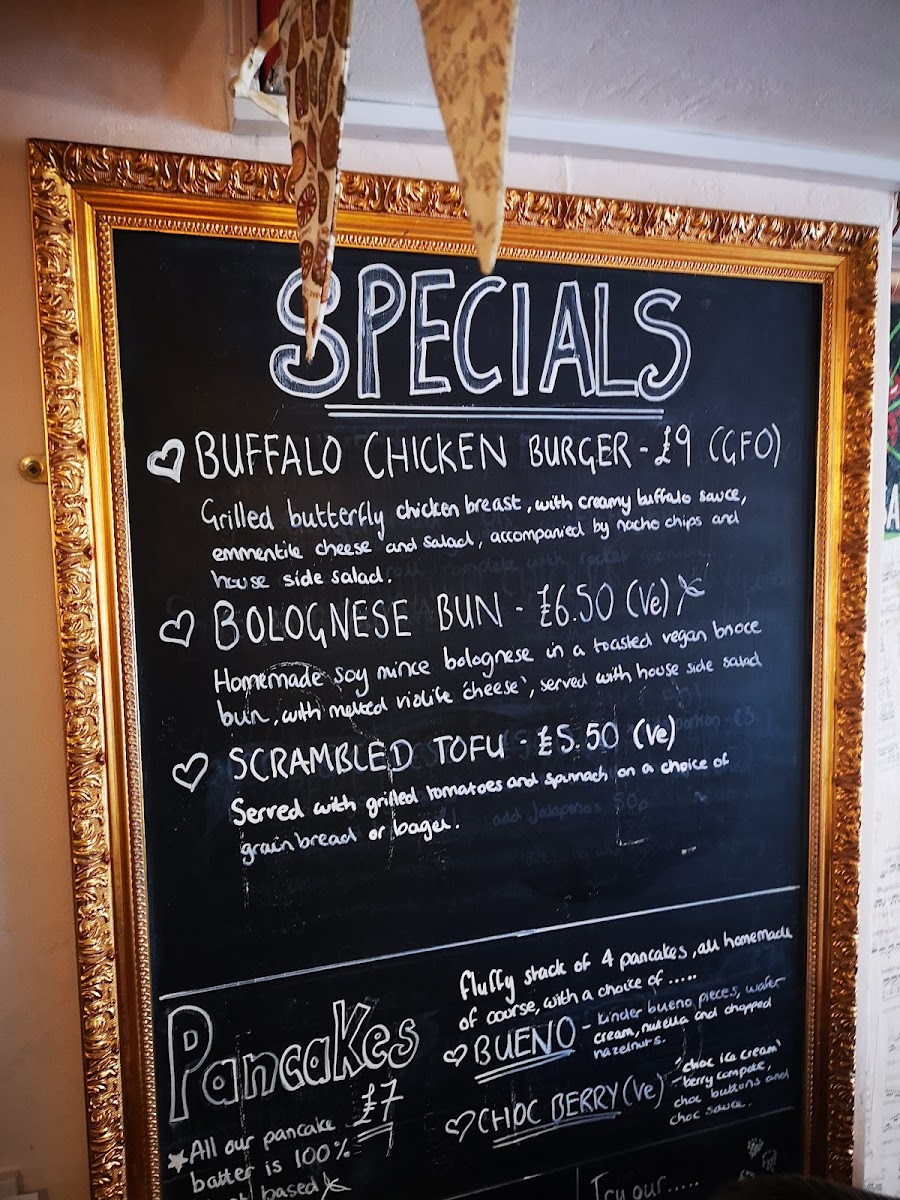 SPECIALS
BUFFALO CHICKEN BURGER - £9 (GFO)
Grilled butterfly chicken breast, with creamy buffalo sauce,
emmentile cheese and salad, accompanied by nacho chips and
house side salad.
BOLOGNESE BUN - £6.50 (Ve)
Homemade soy mince bolognese in a toasted vegan brioce
bun, with melted violife 'cheese', served with house side salad
SCRAMBLED TOFU - £5.50 (Ve)
Served with grilled tomatoes and spinach on a choice of
grain bread or bagel.
add Jalapenos 50p
Pancakes
£7
All our pancake
batter is 100%
based
fluffy stack of 4 pancakes, all homemade
of course, with a choice of .....
BUENO - kinder bueno pieces, wafer
cream, nutella and chopped
hazelnuts.
CHOC BERRY (Ve) - 'choc ice cream'
berry compote,
choc buttons and
choc sauce.
Try our.....